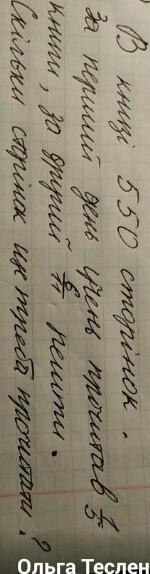 В книзі 550 сторінок.
За перший день учень прочитав 1/5
книги, за другий 6/11 решти.
Скільки сторінок ще треба прочитати?
Ольга Теслен